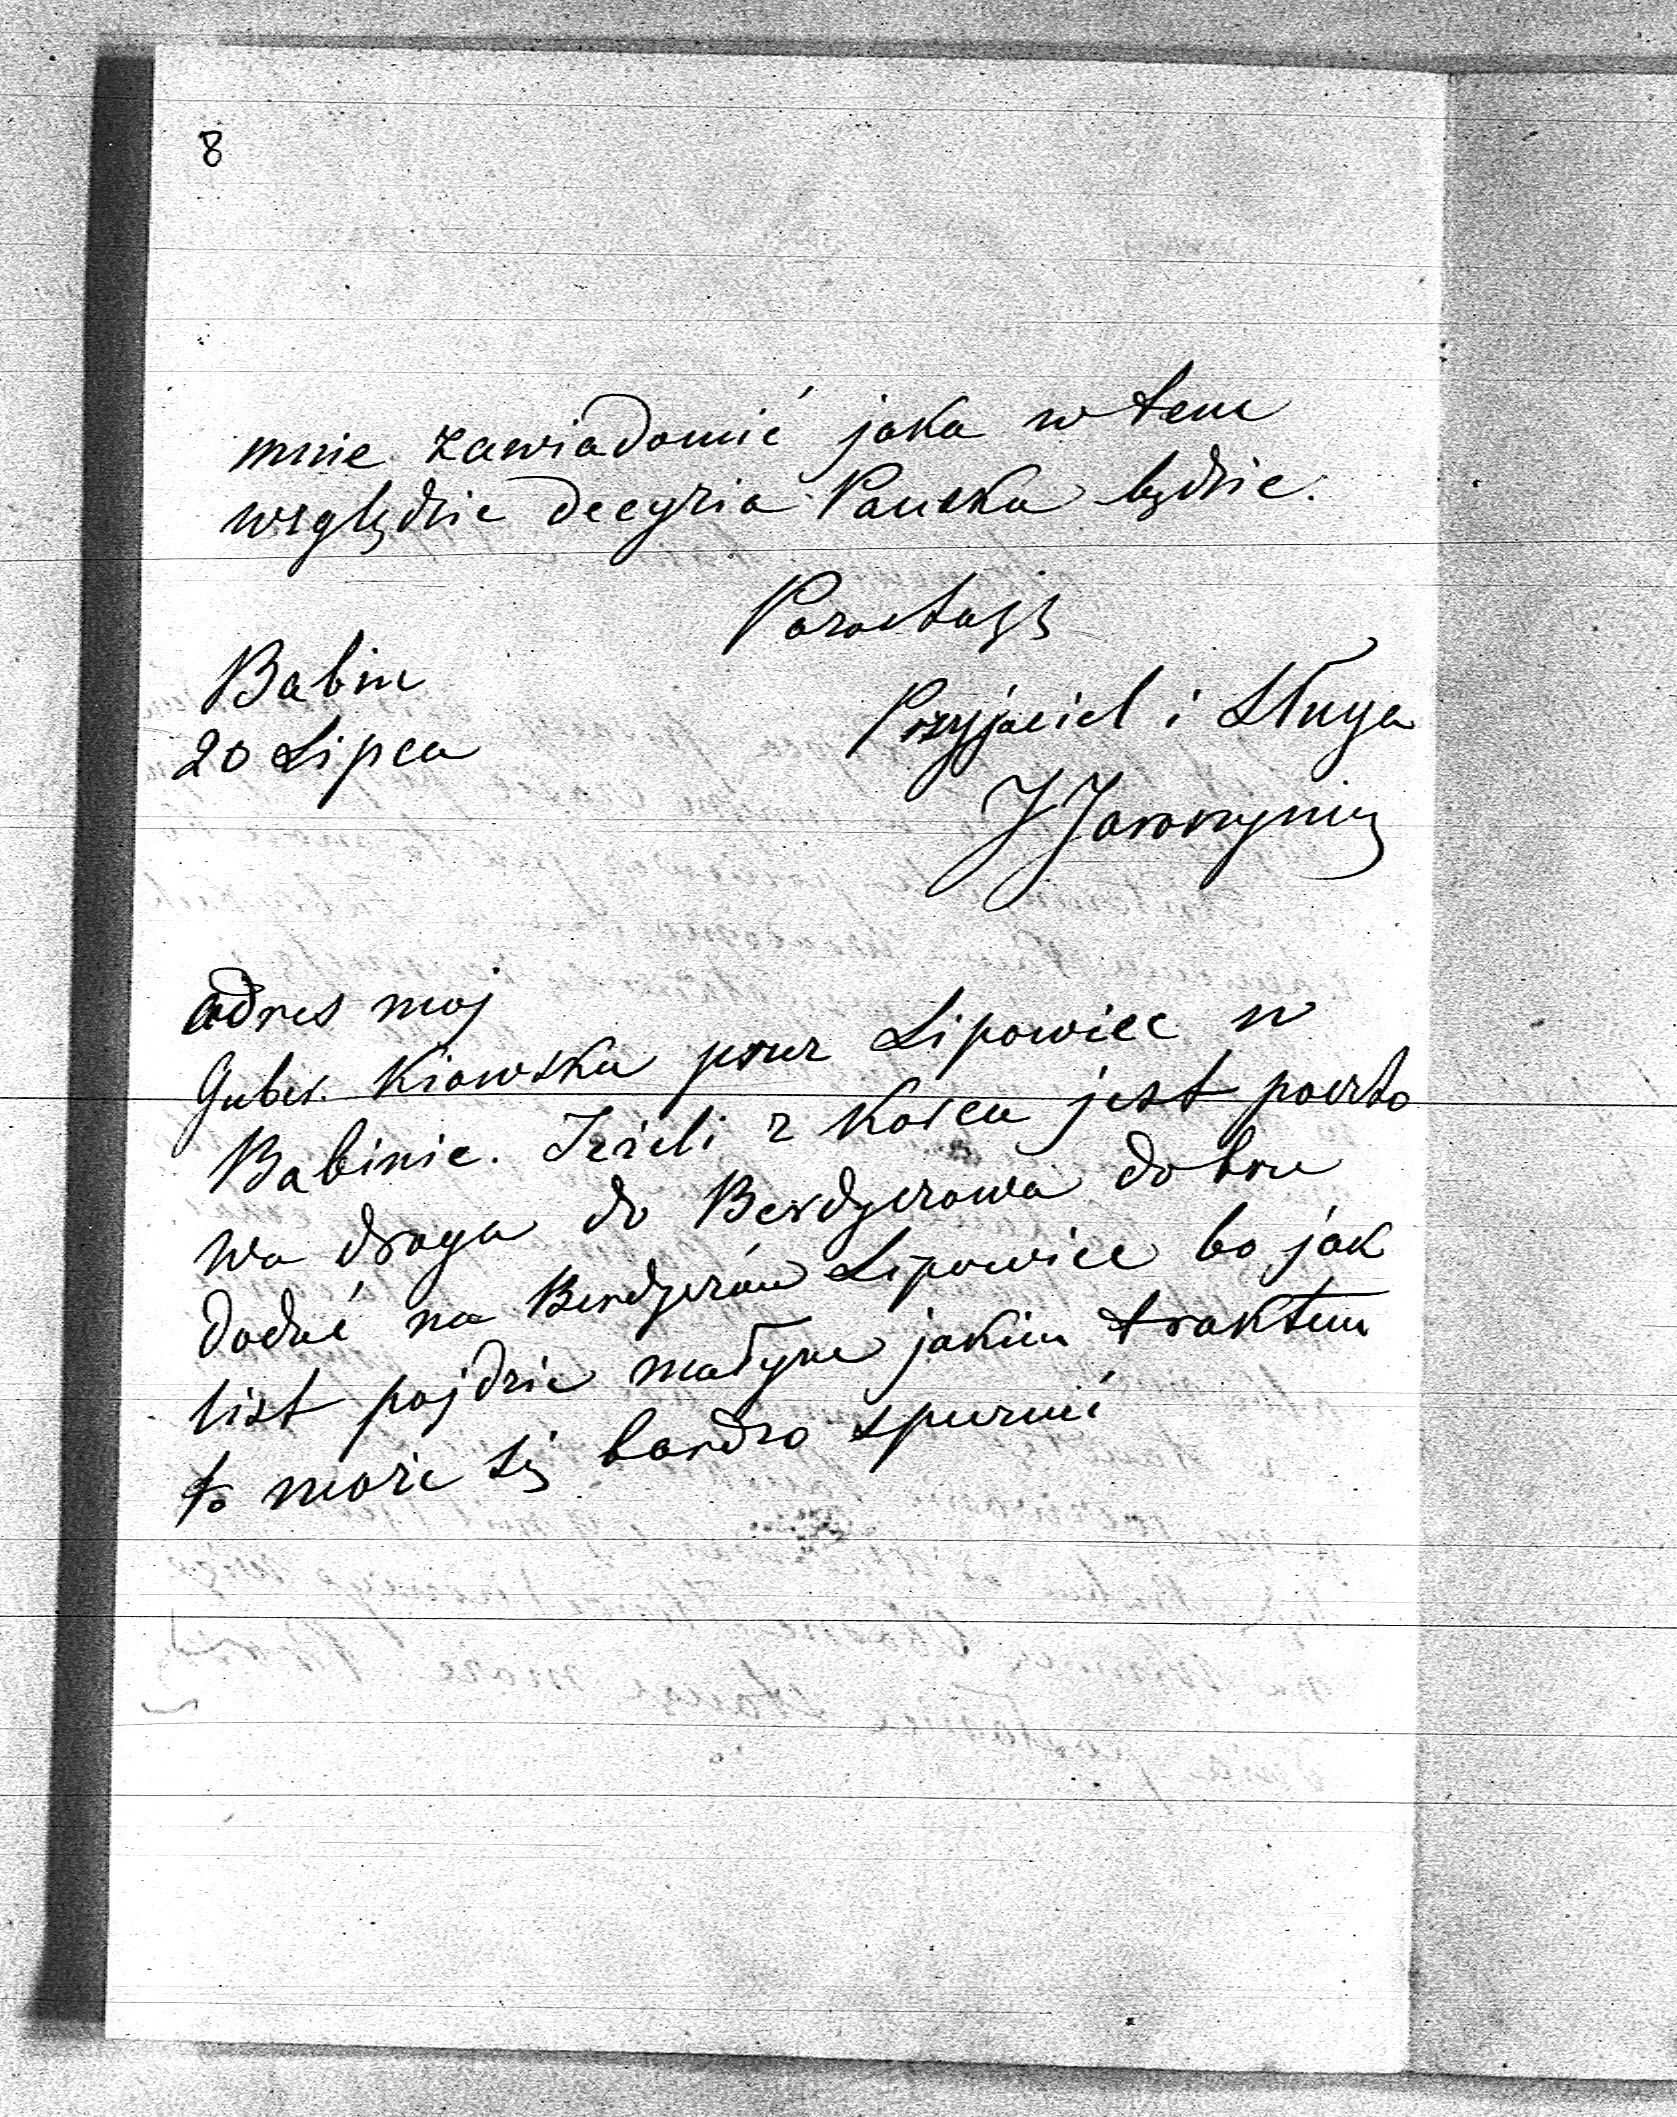 8
mnie zawiadomić jaka w tem
względzie decyzia Pańska będzie.
Pozostaję
Babin
20 Lipca
Przyjaciel i Sługa
adres moj
Guber. Kiowska przez Lipowiec w
Babinie. Jeżeli z Korca jest poczto
wa droga do Berdyczowa dobrze
dodać na Berdyczów Lipowiec bo jak
list pojdzie małym jakim traktem
to może się bardzo spuznić